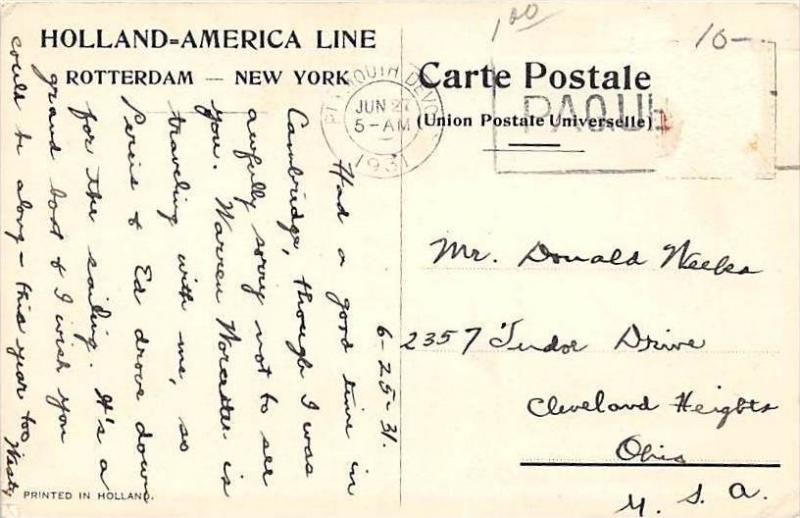 HOLLAND=AMERICA LINE
ROTTERDAM — NEW YORK
6-25-31.
Had a good time in
Cambridge, though I was
awfully sorry not to see
you. Warren Worcester is
traveling with me, so
& Ed drove down
for the sailing. It's a
grand boat & I wish you
could be along – this year too
Westy
PRINTED IN HOLLAND.
PLYMOUTH DEVON
JUN 27
5-AM
1931
1.00
10-
PAQUE
Carte Postale
(Union Postale Universelle)
Mr. Donald Weeks
2357 Tudor Drive
Cleveland Heights
Ohio
U. S. A.